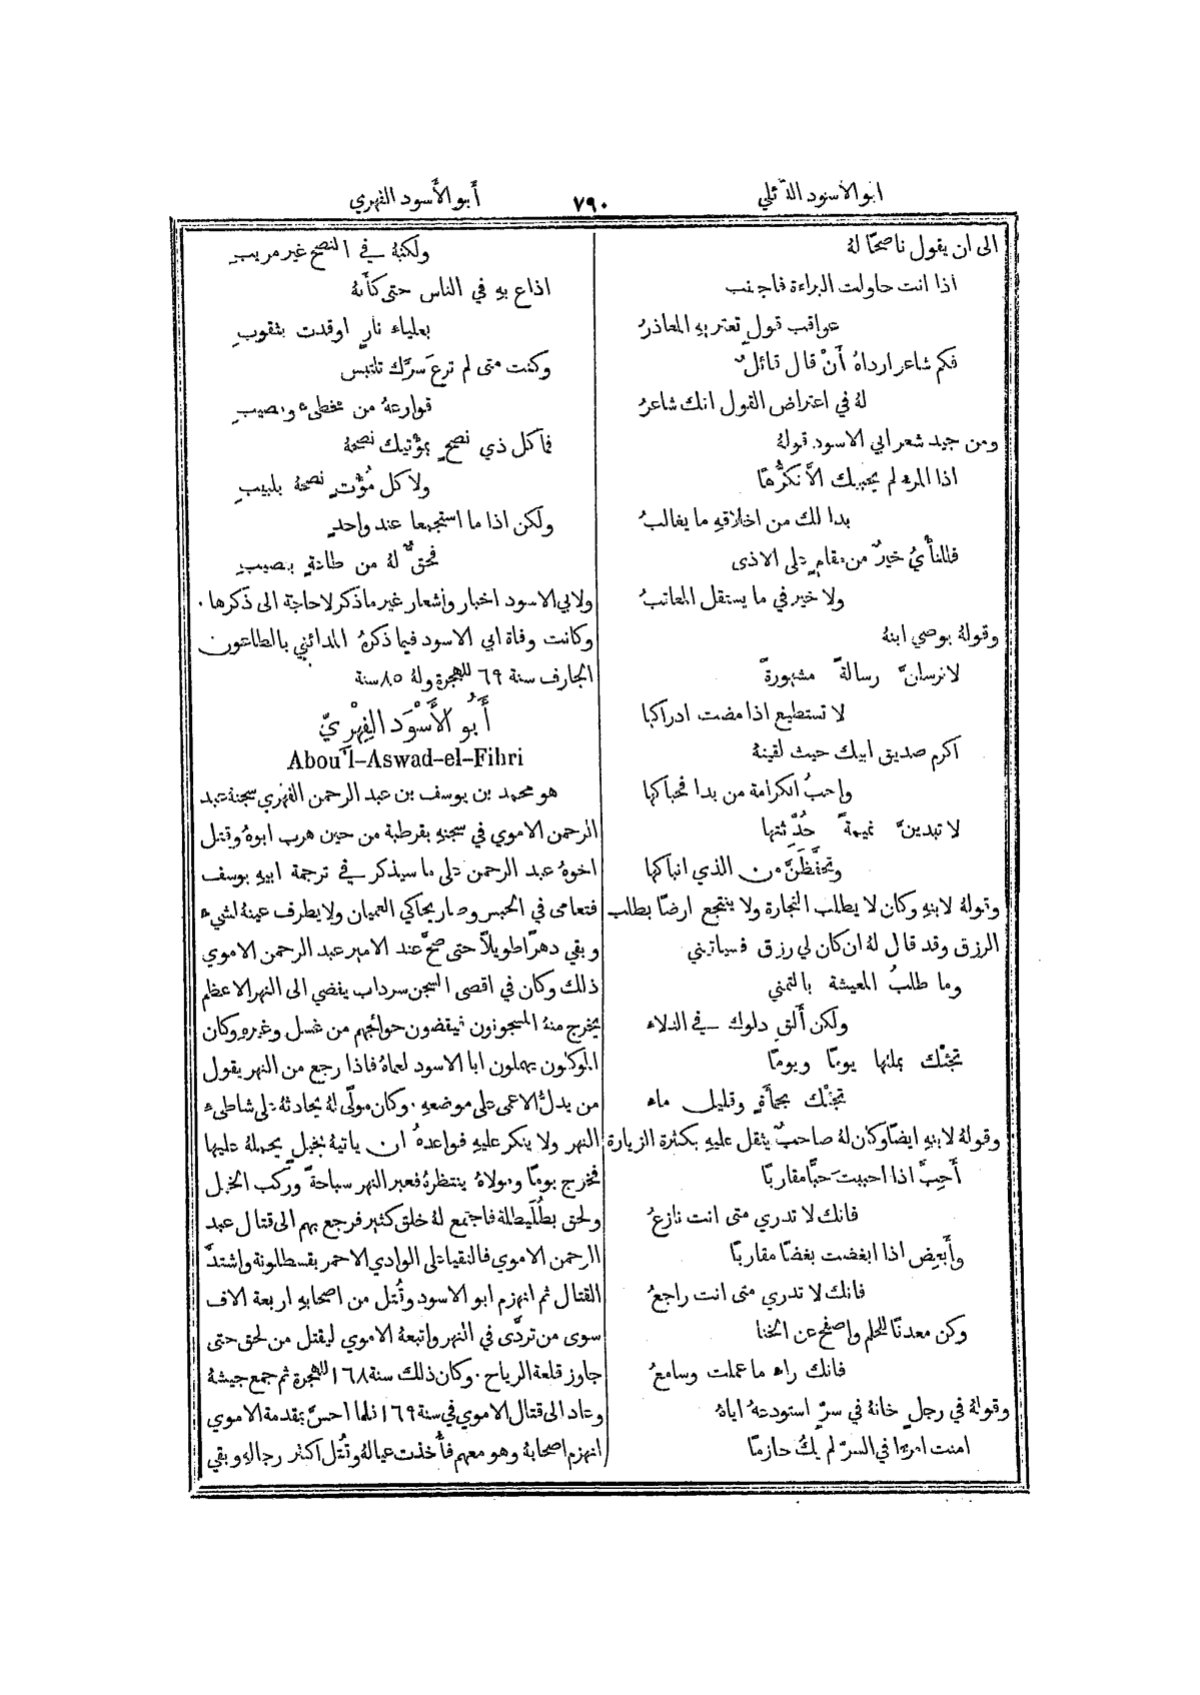 ابو الاسود الدئلي
٧٩٠
أَبو الأَسود الفهري
الى ان يقول ناصحًا لهُ
اذا انت حاولت البراءة فاجتنب
عواقب قولٍ تعتريهِ المعاذرُ
فكم شاعر ارداهُ أَنْ قال قائلٌ
لهُ في اعتراض القول انك شاعرُ
ومن جيد شعر ابي الاسود قولهُ
اذا المرء لم يحببك الاَّ تكرُّهًا
بدا لك من اخلاقهِ ما يغالبُ
فللنأْيُ خيرٌ من مقامٍ على الاذى
ولا خير في ما يستقل المعاتبُ
وقولهُ يوصي ابنهُ
لا ترسلنَّ رسالةً مشهورةً
لا تستطيع اذا مضت ادراكها
اكرم صديق ابيك حيث لقيتهُ
واحبُ الكرامة من بدا فحباكها
لا تبدينَّ نميمةً حُدِّثتها
وتحفَّظَنَّ من الذي انباكها
وقولهُ لابنهِ وكان لا يطلب التجارة ولا ينتجع ارضًا يطلب
الرزق وقد قال لهُ ان كان لي رزق فسياتيني
وما طلبُ المعيشة بالتمني
ولكن أَلقِ دلوك في الدلاء
تجئك بملئها يومًا ويومًا
تجئك بحمأَةٍ وقليل ماء
وقولهُ لابنهِ ايضًا وكان لهُ صاحبٌ يثقل عليهِ بكثرة الزيارة
أَحبَّ اذا احببتَ حبًّا مقاربًا
فانك لا تدري متى انت نازعُ
وأَبغِض اذا ابغضت بغضًا مقاربًا
فانك لا تدري متى انت راجعُ
وكن معدنًا للحلم واصفح عن الخنا
فانك راء ما عملت وسامعُ
وقولهُ في رجلٍ خانهُ في سرٍّ استودعهُ اياهُ
امنت امرءًا في السرّ لم يكُ حازمًا
ولكنهُ في النصح غير مريبِ
اذاع بهِ في الناس حتى كأَنهُ
بعلياء نارٍ اوقدت بثقوبِ
وكنت متى لم ترعَ سرَّك تلتبس
قوارعهُ من مخطىء ومصيبِ
فما كل ذي نصحٍ بمؤْتيك نصحهُ
ولا كل مُؤْتٍ نصحهُ بلبيبِ
ولكن اذا ما استجمعا عند واحدٍ
فحقٌّ لهُ من طاعةٍ بنصيبِ
ولابي الاسود اخبار واشعار غير ما ذكر لا حاجة الى ذكرها .
وكانت وفاة ابي الاسود فيما ذكرهُ المدائني بالطاعون
الجارف سنة ٦٩ للهجرة ولهُ ٨٥ سنة
أَبُو الأَسْوَد الفِهْرِيّ
Abou'l-Aswad-el-Fihri
هو محمد بن يوسف بن عبد الرحمن الفهري سجنهُ عبد
الرحمن الاموي في سجنهِ بقرطبة من حين هرب ابوهُ وقتل
اخوهُ عبد الرحمن على ما سيذكر في ترجمة ابيهِ يوسف
فتعامى في الحبس وصار يحاكي العميان ولا يطرف عينهُ لشيء
وبقي دهرًا طويلاً حتى صحَّ عند الامير عبد الرحمن الاموي
ذلك وكان في اقصى السجن سرداب يفضي الى النهر الاعظم
يخرج منهُ المسجونون فيقضون حوائجهم من غسل وغيرهِ وكان
الموكلون يهملون ابا الاسود لعماهُ فاذا رجع من النهر يقول
من يدلُّ الاعمى على موضعهِ . وكان مولًى لهُ يحادثهُ على شاطىء
النهر ولا ينكر عليهِ فواعدهُ ان ياتيهُ بخيلٍ يحملهُ عليها
فخرج يومًا ومولاهُ ينتظرهُ فعبر النهر سباحةً وركب الخيل
ولحق بطُلَيطلة فاجتمع لهُ خلق كثير فرجع بهم الى قتال عبد
الرحمن الاموي فالتقيا على الوادي الاحمر بقسطلونة واشتدَّ
القتال ثم انهزم ابو الاسود وقُتل من اصحابهِ اربعة الاف
سوى من تردَّى في النهر واتبعهُ الاموي ليقتل من لحق حتى
جاوز قلعة الرباح . وكان ذلك سنة ١٦٨ للهجرة ثم جمع جيشهُ
وعاد الى قتال الاموي في سنة ١٦٩ فلما احسَّ بمقدمة الاموي
انهزم اصحابهُ وهو معهم فأُخذت عيالهُ وقُتل اكثر رجالهِ وبقي